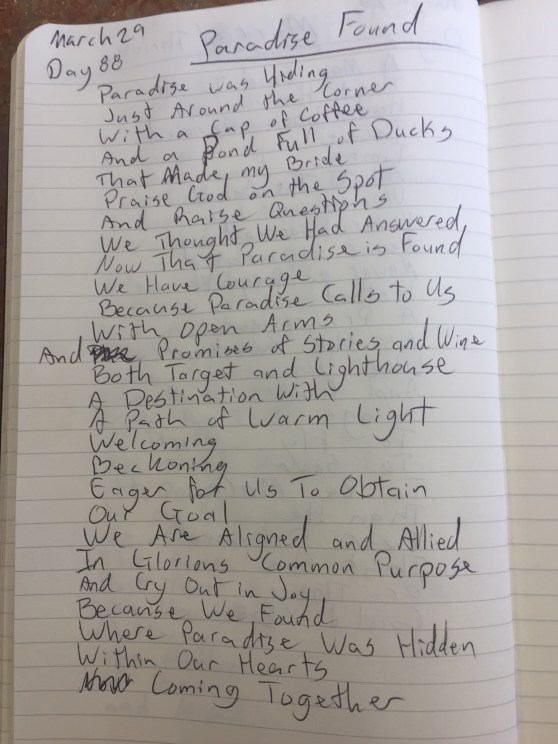 March 29
Paradise Found
Day 88
Paradise was Hiding
Just Around the Corner
With a Cup of Coffee
And a Pond Full of Ducks
That Made my Bride
Praise God on the Spot
And Raise Questions
We Thought We Had Answered
Now That Paradise is Found
We Have Courage
Because Paradise Calls to Us
With Open Arms
And Promises of Stories and Wine
Both Target and Lighthouse
A Destination With
A Path of Warm Light
Welcoming
Beckoning
Eager for Us To Obtain
Our Goal
We Are Aligned and Allied
In Glorious Common Purpose
And Cry Out in Joy
Because We Found
Where Paradise Was Hidden
Within Our Hearts
Coming Together